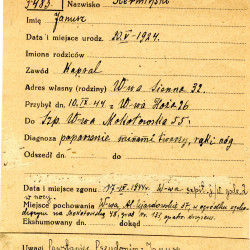 5483. Nazwisko
Imię Janusz
Data i miejsce urodz. 20.V 1924.
Imiona rodziców
Zawód Kapral
Adres własny (rodziny) W-wa Sienna 32.
Przybył dn. 10.IX 44 z W-wa Hoża 26
Do Szp. W-wa Mokotowska 55.
Diagnoza poparzenie minami twarzy, rąk i nóg
Odszedł dn. do
Data i miejsce zgonu 17.IX.1944. W-wa szpit. j.w. godz. 2
w nocy.
Miejsce pochowania W-wa, Al. Ujazdowskie 37, w ogródku
na Mokotowską 48, grób nr. 131,
Ekshumowany dn. dokąd
Uwagi Powstaniec Pseudonim: Janusz